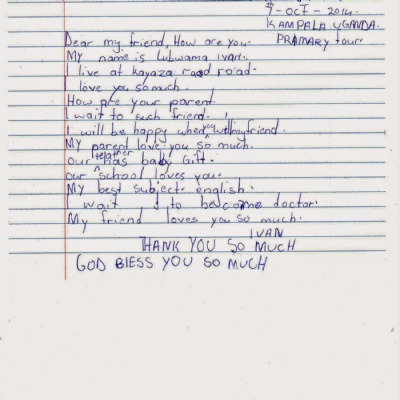 9-OCT-2014
KAMPALA UGANDA.
PRAMARY four
Dear my friend, How are you.
My name is Lubwama ivan.
I live at kayaza road road.
I love you so much.
How are your parent.
I wait to such friend.
I will be happy when you with my friend.
My parent love you so much.
our teather has baby Gift.
our school loves you.
My best subject english.
I wait I to become doctor.
My friend loves you so much.
IVAN
THANK YOU SO MUCH
GOD BIESS YOU SO MUCH